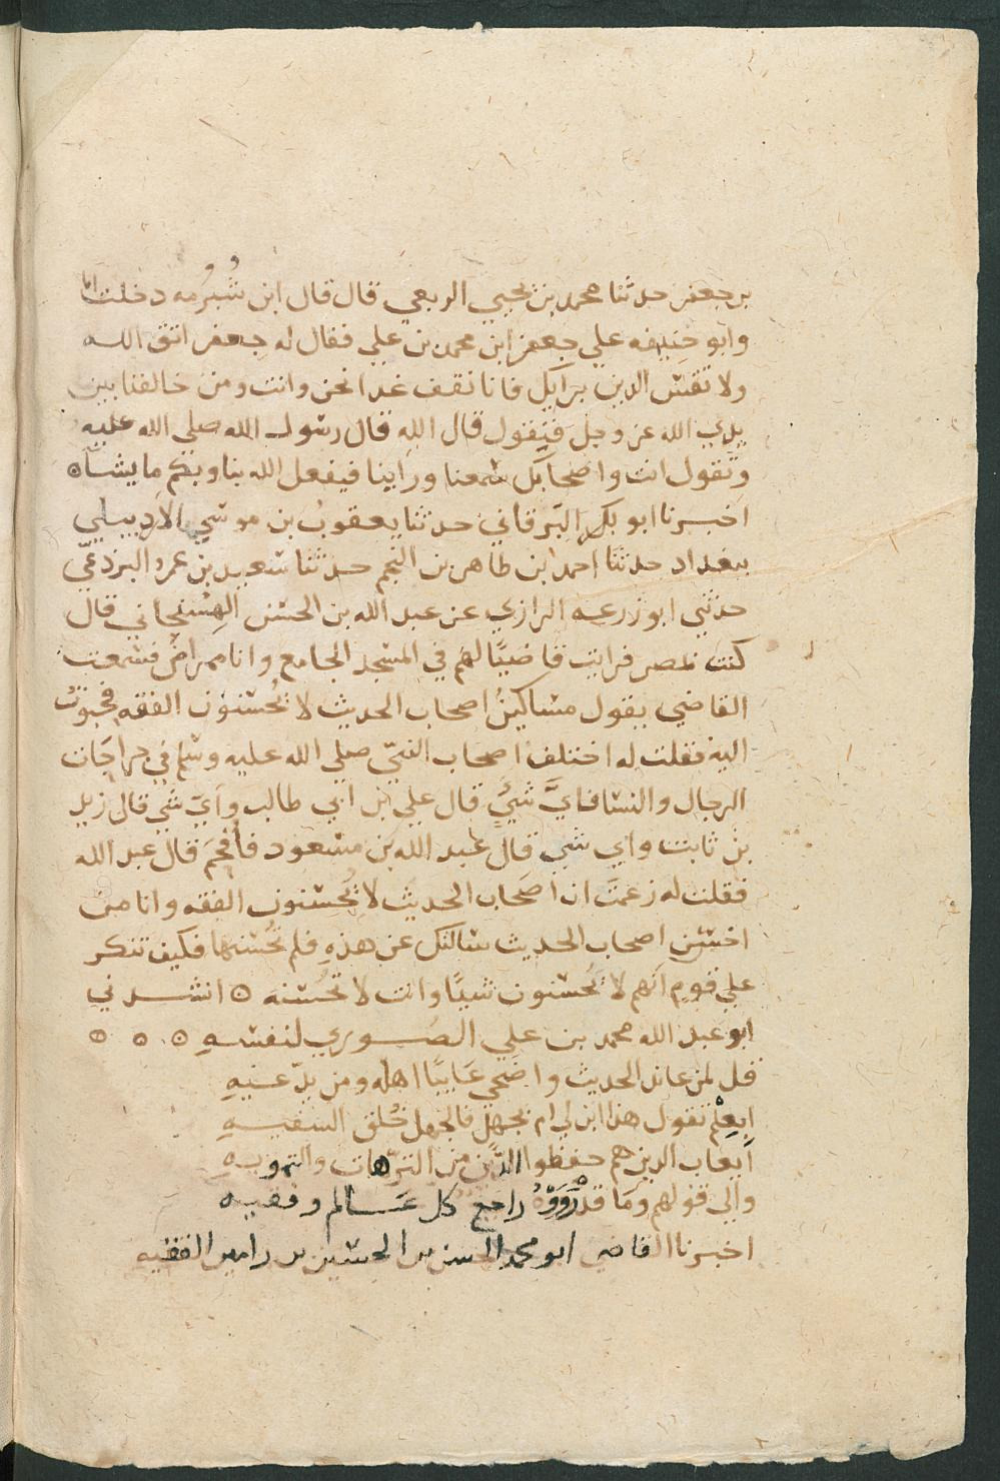 بن جعفر حدثنا محمد بن يحيي الربعي قال قال ابن شُبرُمه دخلت انا
وابو حنيفه علي جعفر ابن محمد بن علي فقال له جعفر اتق الله
ولا تقس الدين برايك فانا نقف غدا نحن وانت ومن خالفنا بين
يدي الله عز وجل فنقول قال الله قال رسول الله صلى الله عليه
وتقول انت واصحابك سمعنا وراينا فيفعل الله بنا وبكم ما يشاء ه
اخبرنا ابو بكر البرقاني حدثنا يعقوب بن موسي الاردبيلي
ببغداد حدثنا احمد ابن طاهر بن النجم حدثنا سعيد بن عمرو البرذعي
حدثني ابو زرعه الرازي عن عبد الله بن الحسن الهِسِنجاني قال
كنت بمصر فرايت قاضيًا لهم في المسجد الجامع وانا ممراض فسمعت
القاضي يقول مساكينُ اصحاب الحديث لا يُحسنون الفقه فحبوتُ
اليه فقلت له اختلف اصحاب النبي صلي الله عليه وسلم في جراحات
الرجال والنسا فايَّ شيٍ قال علي بن ابي طالب وايّ شي قال زيد
بن ثابت واي شي قال عبد الله بن مسعود فأُفحِمَ قال عبد الله
فقلت له زعمتَ ان اصحاب الحديث لا يُحسنون الفقه وانا من
اخسّ اصحاب الحديث سالتك عن هذهِ فلم تُحسنها فكيف تنكر
علي قوم انهم لا يُحسنون شيًا وانت لا تُحسنه ه انشدني
ابو عبد الله محمد بن علي الصوري لنفسهِ ه ه ه
قل لمن عاند الحديث واضحي عَايبًا اهله ومن يدّعيهِ
ابِعِلْم تقول هذا ابن لي ام بجهل فالجهل خُلق السفيهِ
أيعاب الذين هم حفظوا الدّين من الترّهات والتمويهِ
والي قولهم ومَا قد رَوَوْهُ راجع كل عَالم وفقيه
اخبرنا القاضي ابو محمد الحسن بن الحسين بن رامين الفقيه